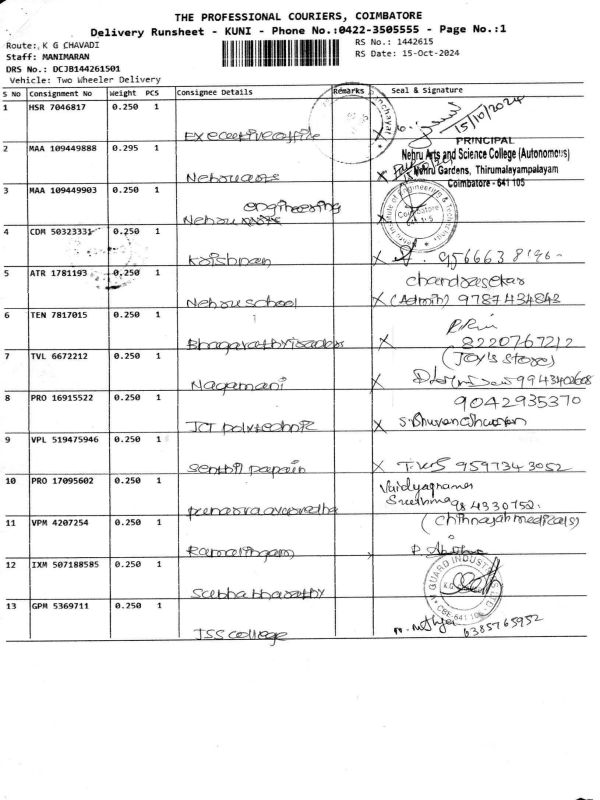 THE PROFESSIONAL COURIERS, COIMBATORE
Delivery Runsheet - KUNI - Phone No.:0422-3505555 - Page No.:1
Route:, K G CHAVADI
RS No.: 1442615
Staff: MANIMARAN
RS Date: 15-Oct-2024
DRS No.: DCJB144261501
Vehicle: Two Wheeler Delivery
S No Consignment No Weight PCS Consignee Details Remarks Seal & Signature
1 HSR 7046817 0.250 1
Executive office
15/10/2024
PRINCIPAL
2 MAA 109449888 0.295 1
Nehru Arts and Science College (Autonomous)
Nehru Gardens, Thirumalayampalayam
Nehru arts
Coimbatore - 641 105
3 MAA 109449903 0.250 1
engineering
Nehru
Coimbatore
4 CDM 50323331 0.250 1
Krishnan
5 ATR 1781193 0.250 1
chandrasekar
Nehru school
X (Admin) 9787434843
6 TEN 7817015 0.250 1
8220767212
7 TVL 6672212 0.250 1
(Joy's Store)
Nagamani
X
8 PRO 16915522 0.250 1
9042935370
JCT polytechnic
X S.Bhuvaneshwaran
9 VPL 519475946 0.250 1
Senthil papain
X 9597343052
10 PRO 17095602 0.250 1
11 VPM 4207254 1 0.250 1
(chinnayah medicals)
Ramalingam
12 IXM 507188585 0.250 1
V GUARD INDUSTRIES LTD
Subha bharathy
CBE-641 105
13 GPM 5369711 0.250 1
JSS college
6385765952